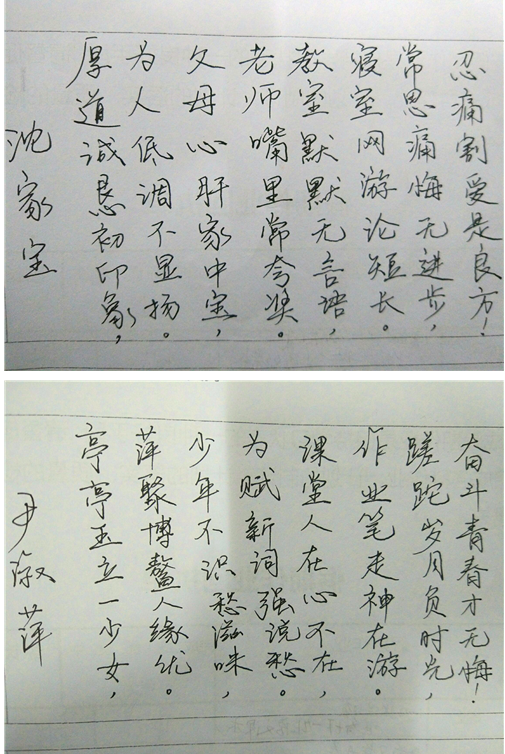 沈家宝
厚道诚恳初印象,
为人低调不显扬。
父母心肝家中宝,
老师嘴里常夸奖。
教室默默无言语,
寝室网游论短长。
常思痛悔无进步,
忍痛割爱是良方!
尹淑萍
亭亭玉立一少女,
萍聚博鳌人缘优。
少年不识愁滋味,
为赋新词强说愁。
课堂人在心不在,
作业笔走神在游。
蹉跎岁月负时光,
奋斗青春才无悔!